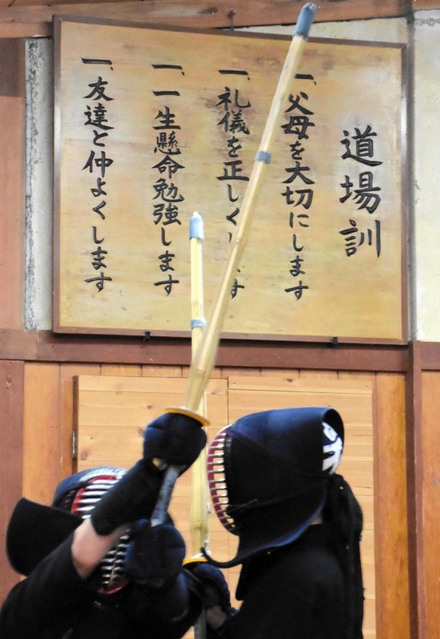 道場訓
一、父母を大切にします
一、礼儀を正しくします
一、一生懸命勉強します
一、友達と仲よくします